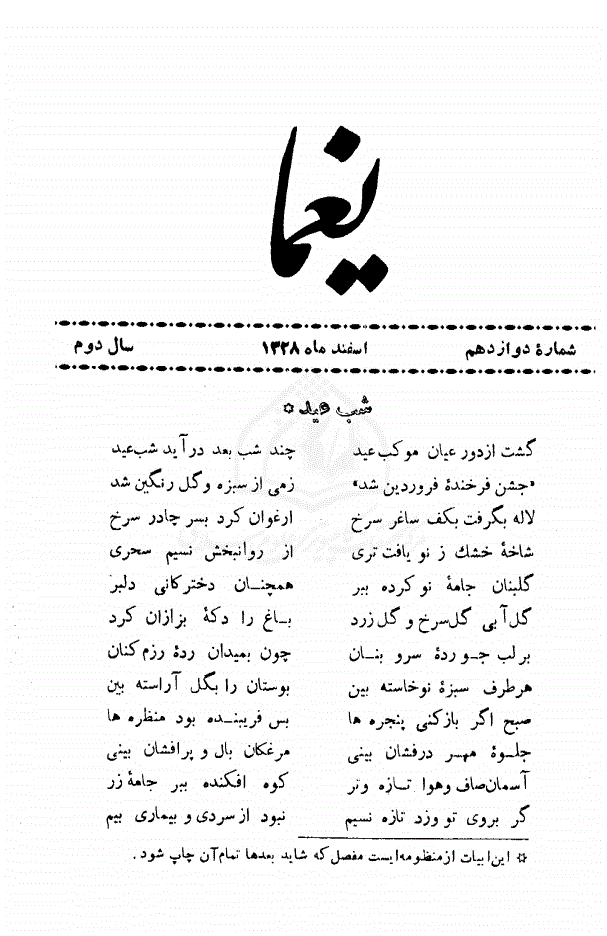 یغما
شمارهٔ دوازدهم اسفند ماه ۱۳۲۸ سال دوم
شب عید ☼
گشت از دور عیان موکب عید چند شب بعد در آید شب عید
«جشن فرخندهٔ فروردین شد» زمی از سبزه و گل رنگین شد
لاله بگرفت بکف ساغر سرخ ارغوان کرد بسر چادر سرخ
شاخهٔ خشك ز نو یافت تری از روانبخش نسیم سحری
گلبنان جامهٔ نو کرده ببر همچنان دخترکانی دلبر
گل آبی گل سرخ و گل زرد باغ را دکهٔ بزازان کرد
بر لب جو ردهٔ سرو بنان چون بمیدان ردهٔ رزم کنان
هر طرف سبزهٔ نوخاسته بین بوستان را بگل آراسته بین
صبح اگر باز کنی پنجره ها بس فریبنده بود منظره ها
جلوهٔ مهر درفشان بینی مرغکان بال و پر افشان بینی
آسمان صاف و هوا تازه و تر کوه افکنده ببر جامهٔ زر
گر بروی تو وزد تازه نسیم نبود از سردی و بیماری بیم
☼ این ابیات از منظومه ایست مفصل که شاید بعدها تمام آن چاپ شود .